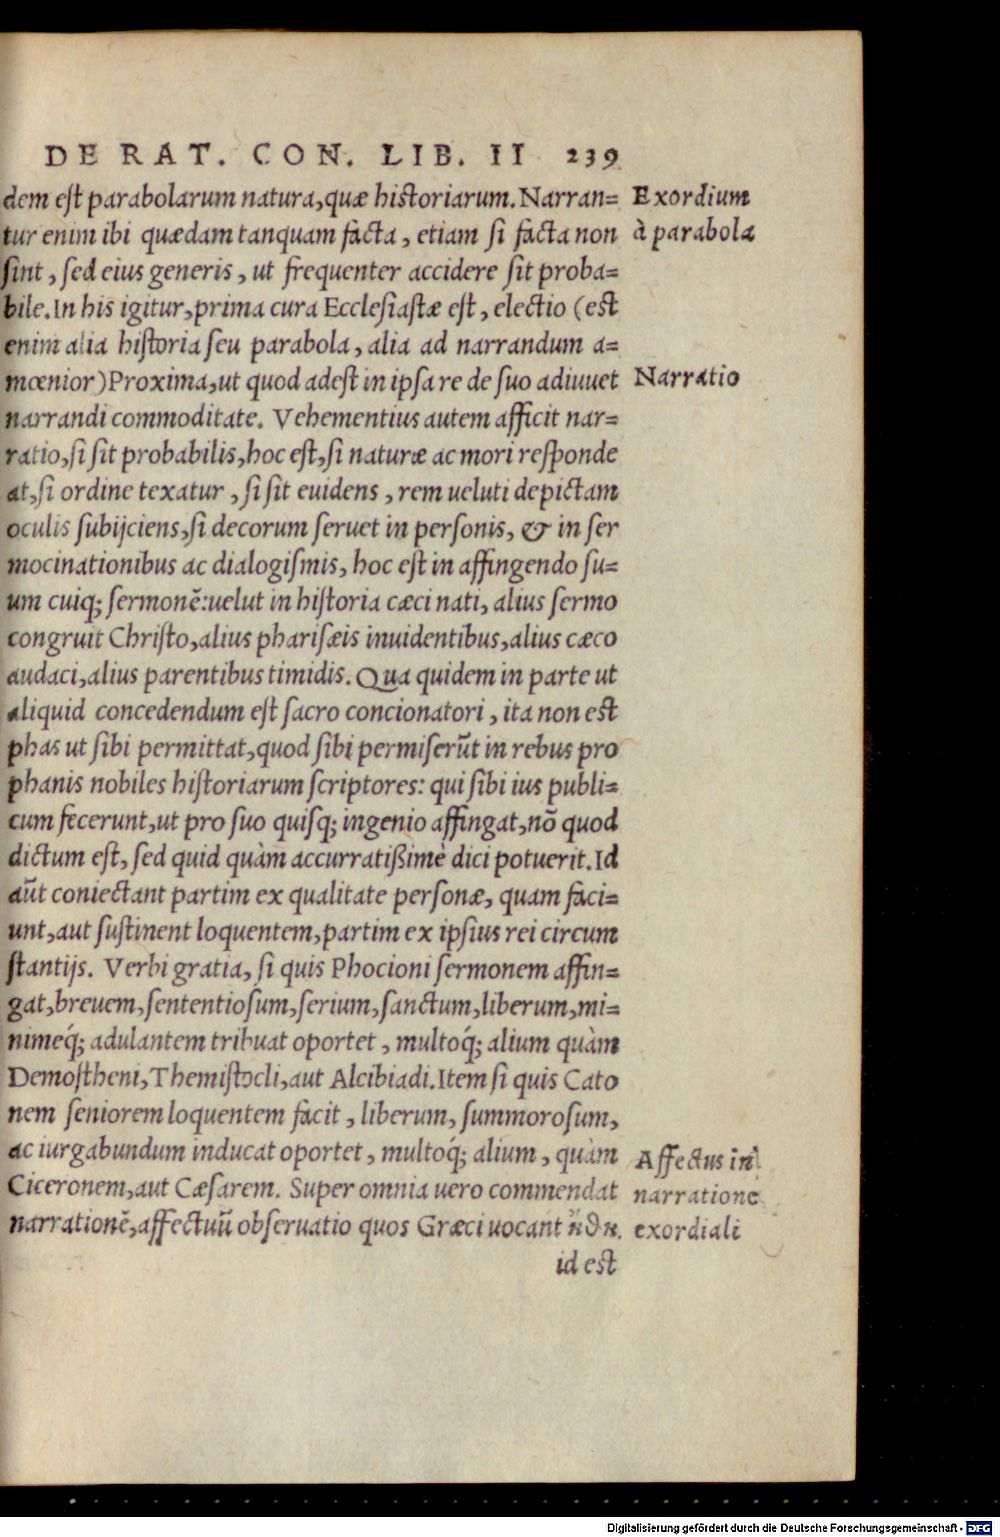 DE RAT. CON. LIB. II 239
dem est parabolarum natura, quæ historiarum. Narran=
Exordium
tur enim ibi quædam tanquam facta, etiam si facta non
à parabola
sint, sed eius generis, ut frequenter accidere sit proba=
bile. In his igitur, prima cura Ecclesiastæ est, electio (est
enim alia historia seu parabola, alia ad narrandum a=
mœnior) Proxima, ut quod adest in ipsa re de suo adiuuet
Narratio
narrandi commoditate. Vehementius autem afficit nar=
ratio, si sit probabilis, hoc est, si naturæ ac mori responde
at, si ordine texatur, si sit euidens, rem ueluti depictam
oculis subijciens, si decorum seruet in personis, & in ser
mocinationibus ac dialogismis, hoc est in affingendo su=
um cuiq; sermonē: uelut in historia cæci nati, alius sermo
congruit Christo, alius pharisæis inuidentibus, alius cæco
audaci, alius parentibus timidis. Qua quidem in parte ut
aliquid concedendum est sacro concionatori, ita non est
phas ut sibi permittat, quod sibi permiserūt in rebus pro
phanis nobiles historiarum scriptores: qui sibi ius publi=
cum fecerunt, ut pro suo quisq; ingenio affingat, nō quod
dictum est, sed quid quàm accurratißimè dici potuerit. Id
aūt coniectant partim ex qualitate personæ, quam faci=
unt, aut sustinent loquentem, partim ex ipsius rei circum
stantijs. Verbi gratia, si quis Phocioni sermonem affin=
gat, breuem, sententiosum, serium, sanctum, liberum, mi=
nimeq́; adulantem tribuat oportet, multoq́; alium quàm
Demostheni, Themistocli, aut Alcibiadi. Item si quis Cato
nem seniorem loquentem facit, liberum, summorosum,
ac iurgabundum inducat oportet, multoq́; alium, quàm
Affectus in
Ciceronem, aut Cæsarem. Super omnia uero commendat
narratione
narrationē, affectuū obseruatio quos Græci uocant ἤθη.
exordiali
id est
Digitalisierung gefördert durch die Deutsche Forschungsgemeinschaft - DFG